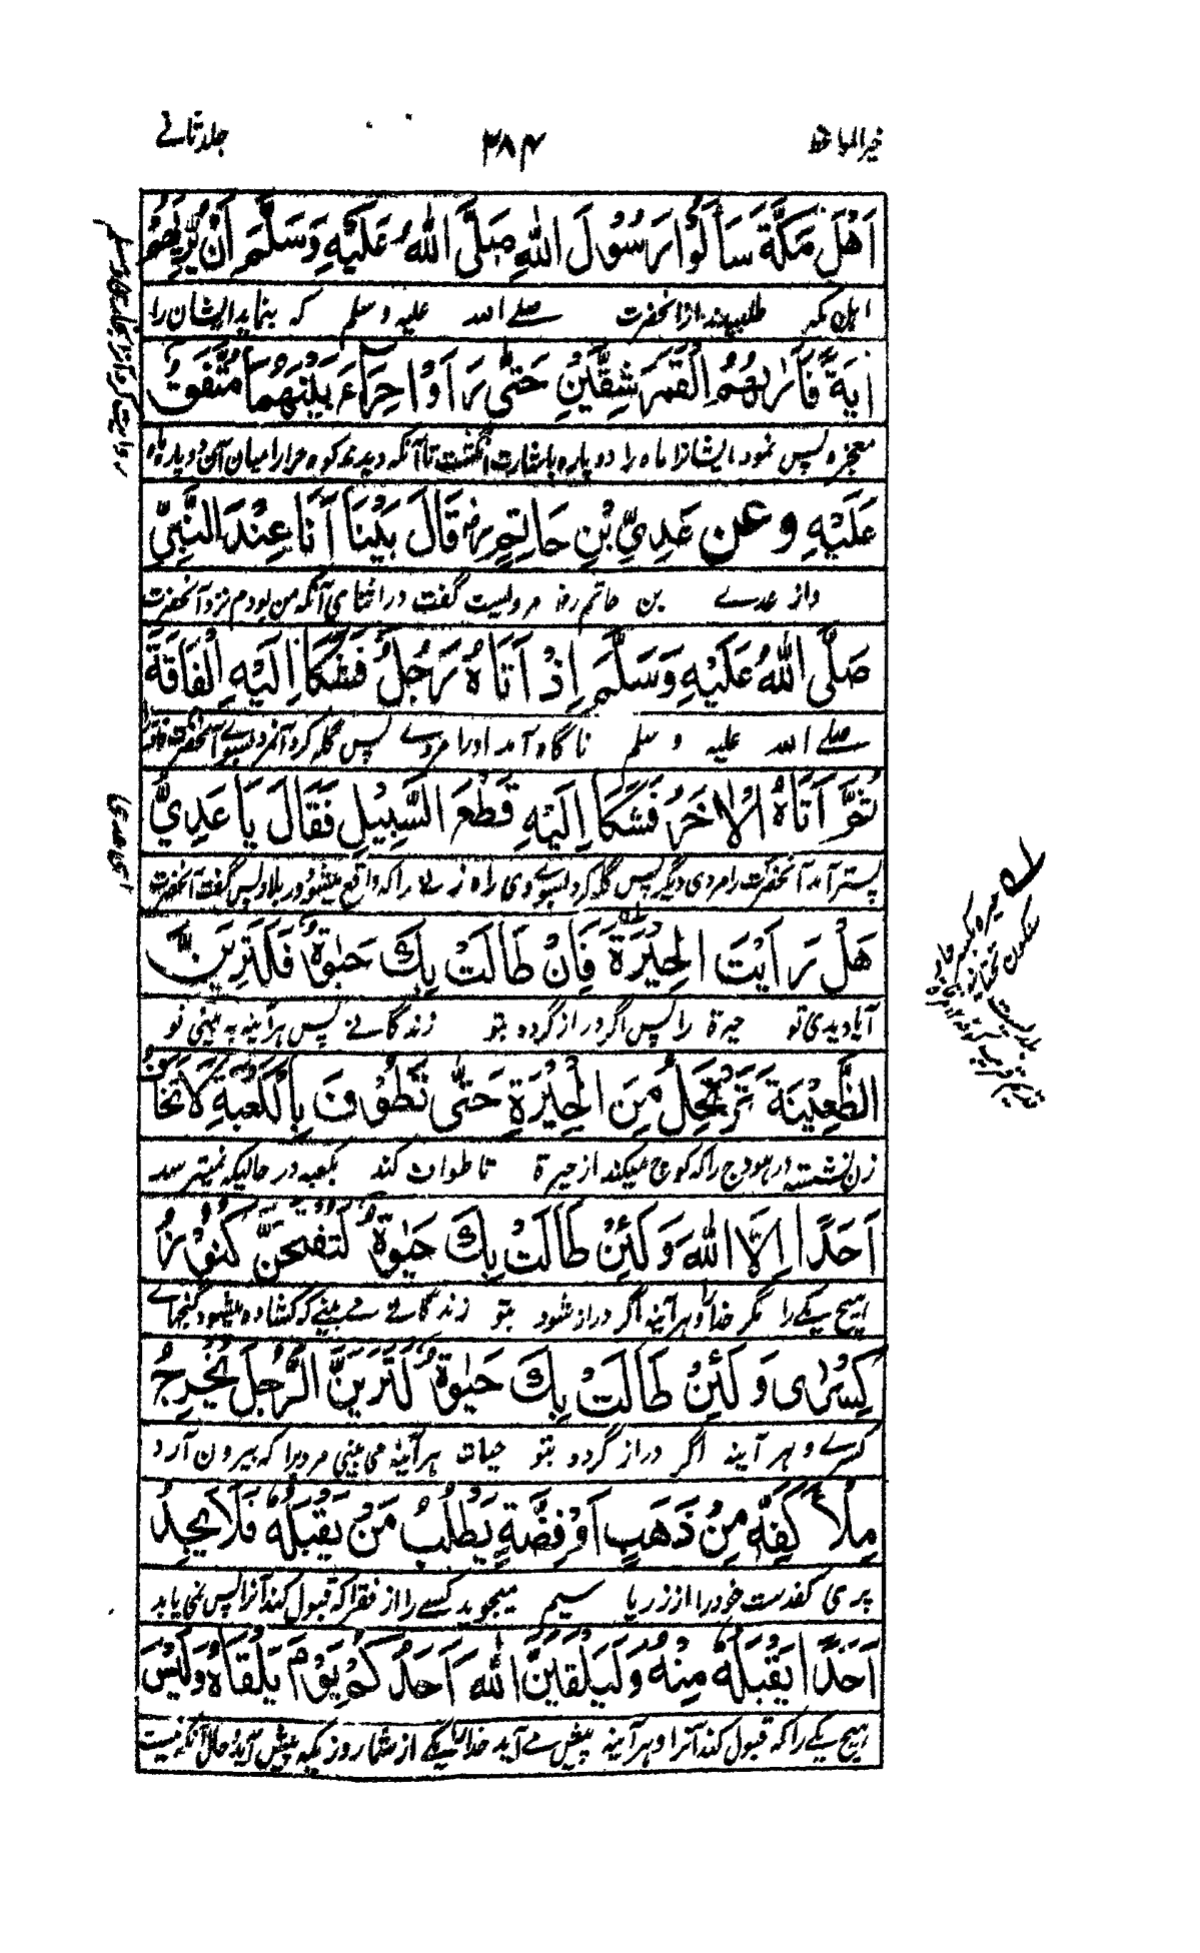 خیر المواعظ ۳۸۴ جلد ثانے
اَهْلَ مَكَّةَ سَاَلُوْا رَسُوْلَ اللهِ صَلَّى اللهُ عَلَيْهِ وَسَلَّمَ اَنْ يُّرِيَهُمْ
اہل مکہ طلبیدند از آنحضرت صلے اللہ علیہ و سلم کہ بنماید ایشان را
اٰيَةً فَاَرٰىهُمُ الْقَمَرَ شِقَّيْنِ حَتّٰى رَاَوْا حِرَآءَ بَيْنَهُمَا مُتَّفَقٌ
معجزہ پس نمود ایشانرا ماہ را دو پارہ باشارت انگشت تا آنکہ دیدند کوہ حرا را میان آن دو پارہ
عَلَيْهِ وعن عَدِيِّ بْنِ حَاتِمٍ رضہ قَالَ بَيْنَا اَنَا عِنْدَ النَّبِيِّ
و از عدے بن حاتم رضہ مرویست گفت در اثنای آنکہ من بودم نزد آنحضرت
صَلَّى اللهُ عَلَيْهِ وَسَلَّمَ اِذْ اَتَاهُ رَجُلٌ فَشَكَا اِلَيْهِ الْفَاقَةَ
صلے اللہ علیہ و سلم ناگاہ آمد او را مردے پس گلہ کرد آنمرد بسوے آنحضرت فاقہ را
ثُمَّ اَتَاهُ الْاٰخَرُ فَشَكَا اِلَيْهِ قَطْعَ السَّبِيْلِ فَقَالَ يَا عَدِيُّ
پستر آمد آنحضرت را مردی دیگر پس گلہ کرد بسوے وی راہ زنے را کہ واقع میشود در بلاد پس گفت آنحضرت
ای عدی
هَلْ رَاَيْتَ الْحِيْرَةَ فَاِنْ طَالَتْ بِكَ حَيٰوةٌ فَلَتَرَيَنَّ
آیا دیدی تو حیرة را پس اگر دراز گردد بتو زندگانے پس ہر آینہ بہ بینی تو
الظَّعِيْنَةَ تَرْتَحِلُ مِنَ الْحِيْرَةِ حَتّٰى تَطُوْفَ بِالْكَعْبَةِ لَا تَخَافُ
زن نشستہ در ہودج را کہ کوچ میکند از حیرة تا طواف کند بکعبہ در حالیکہ نمیترسد
اَحَدًا اِلَّا اللهَ وَلَئِنْ طَالَتْ بِكَ حَيٰوةٌ لَتُفْتَحَنَّ كُنُوْزُ
ہیچ یکے را مگر خدا را و ہر آینہ اگر دراز شود بتو زندگانے مے بینے کہ کشادہ میشود گنجہاے
كِسْرٰى وَلَئِنْ طَالَتْ بِكَ حَيٰوةٌ لَتَرَيَنَّ الرَّجُلَ يُخْرِجُ
کسرے و ہر آینہ اگر دراز گردد بتو حیات ہر آینہ می بینی مرد را کہ بیرون آرد
مِلْأَ كَفِّهٖ مِنْ ذَهَبٍ اَوْ فِضَّةٍ يَطْلُبُ مَنْ يَقْبَلُهٗ فَلَا يَجِدُ
پری کفدست خود را از زر یا سیم میجوید کسے را از فقرا کہ قبول کند آنرا پس نمی یابد
اَحَدًا يَقْبَلُهٗ مِنْهُ وَلَيَلْقَيَنَّ اللهَ اَحَدُكُمْ يَوْمَ يَلْقَاهُ وَلَيْسَ
ہیچ یکے را کہ قبول کند آنرا و ہر آینہ پیش مے آید خدا را یکے از شما روزیکہ پیش آید و حال آنکہ نیست